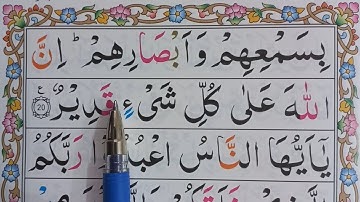 بِسَمْعِهِمْ وَاَبْصَارِهِمْ ؕ اِنَّ
اللّٰهَ عَلٰى كُلِّ شَىْءٍ قَدِيْرٌ ﴿20﴾ ع
يٰۤاَيُّهَا النَّاسُ اعْبُدُوْا رَبَّكُمُ